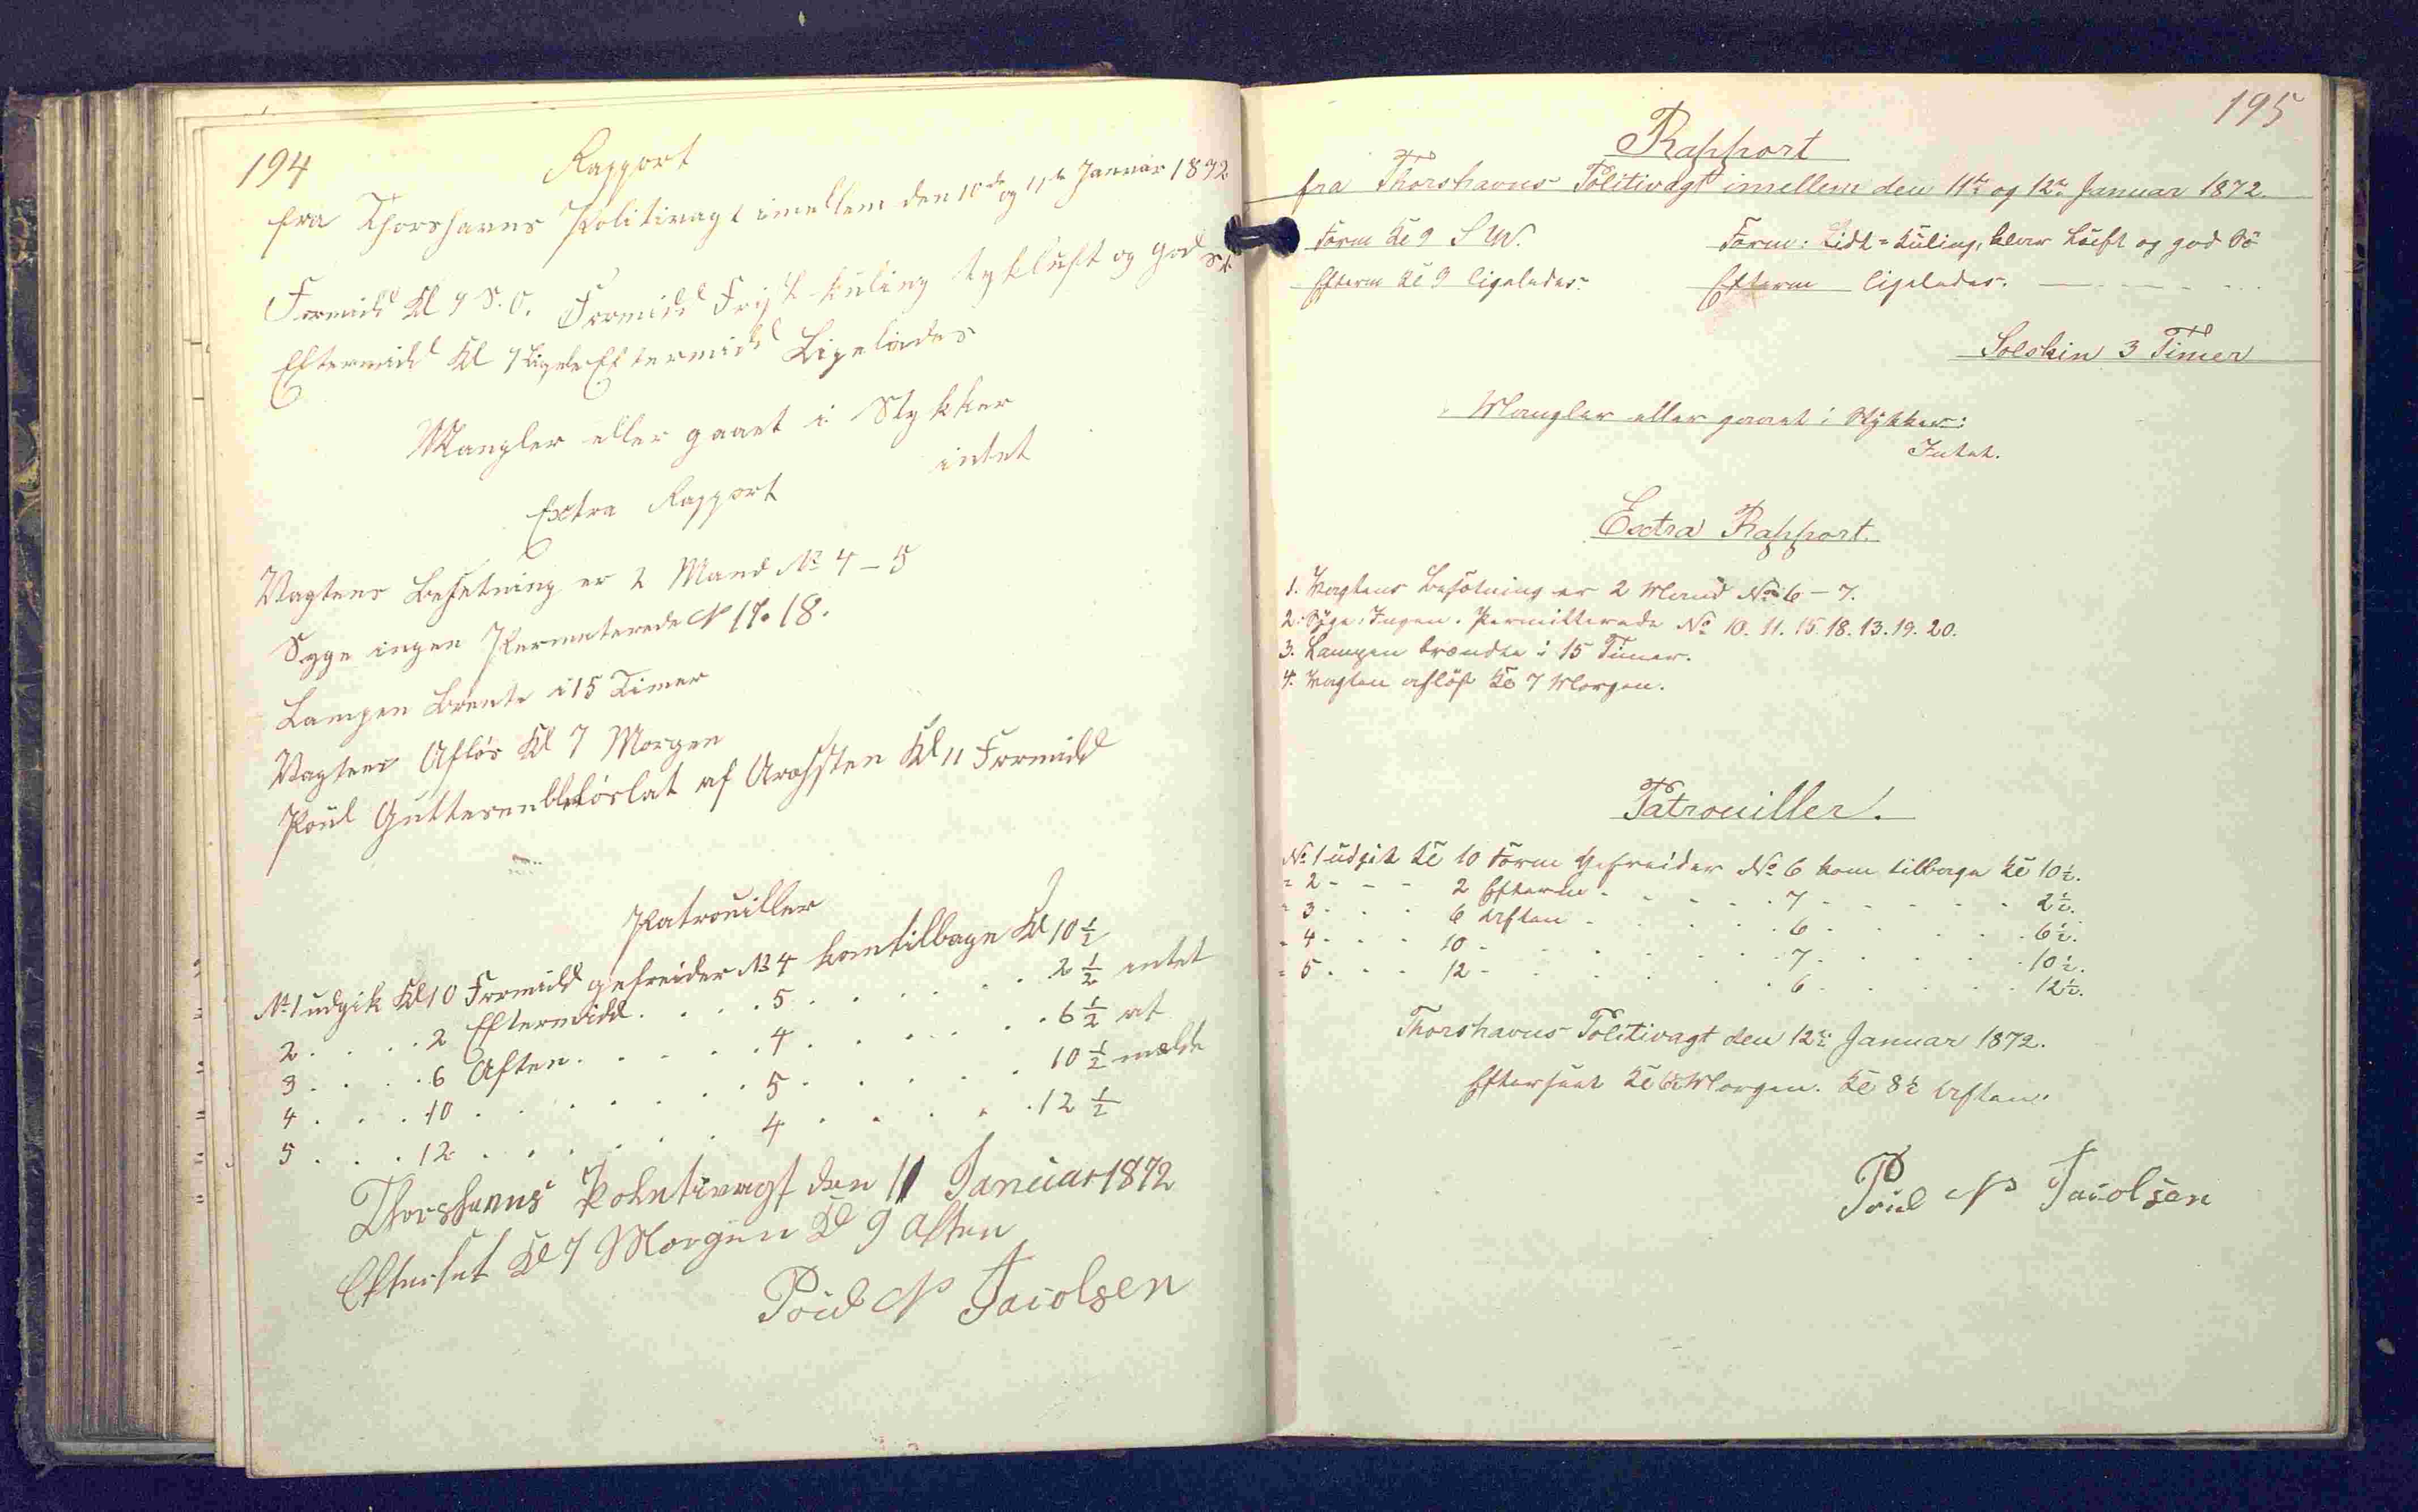 194
Rapport
fra Thorshavns Politivagt imellem den 10de og 11te Januar 1872
Formidd Kl 9 S.O. Formidd Frisk Kuling tykluft og God Sö
Eftermidd Kl 9 Ligele Eftermidd Ligelades
Mangler eller gaaet i Stykker
intet
Extra Rapport
Vagtens Besetning er 2 Mand No 4 - 5
Syge ingen Permeterede N 17. 18.
Lampen Brente i 15 Timer
Vagten Aflös Kl 7 Morgen
Poul Guttesen löslat af Arresten Kl 11 Formidd
Patrouiller
No 1 udgik Kl 10 Formidd gefreider No 4 kom tilbage Kl 10 1/2
2 . . . . 2 Eftermidd . . . . 5 . . . . . . 2 1/2 intet
3 . . . . 6 Aften . . . . . 4 . . . . . . 6 1/2 at
4 . . . 10 . . . . . . . 5 . . . . . . 10 1/2 mælde
5 . . . 12 . . . . . . 4 . . . . . 12 1/2
Thorshavns Poletivagt den 11 Januar 1872
Efterset Kl 7 Morgen Kl 9 Aften
Poul N Jacobsen
195
Rapport
fra Thorshavns Politivagt imellem den 11te og 12te Januar 1872.
Form Kl 9 S W. Form: Lidt = Kuling, klar Luft og god Sö
Efterm Kl 9 ligeledes. Efterm ligeledes.
Solskin 3 Timer
Mangler eller gaaet i Stykker:
Intet.
Extra Rapport.
1. Vagtens Besætning er 2 Mand No 6 - 7.
2. Syge: Ingen. Permitterede No 10. 11. 15. 18. 13. 19. 20.
3. Lampen brændte i 15 Timer.
4. Vagten aflöst Kl 7 Morgen.
Patrouiller.
No 1 udgik Kl 10 Form Gefreider No 6 kom tilbage Kl 10 1/2.
" 2 - - - 2 Efterm - - - - 7 - - - - - 2 1/2.
" 3 - - - 6 Aften - - - - 6 - - - - - 6 1/2.
" 4 - - - 10 - - - - - - 7 - - - - - 10 1/2.
" 5 - - - 12 - - - - - - 6 - - - - - 12 1/2.
Thorshavns Politivagt den 12te Januar 1872.
Efterseet Kl Morgen. Kl 8 1/2 Aften.
Poul N Jacobsen